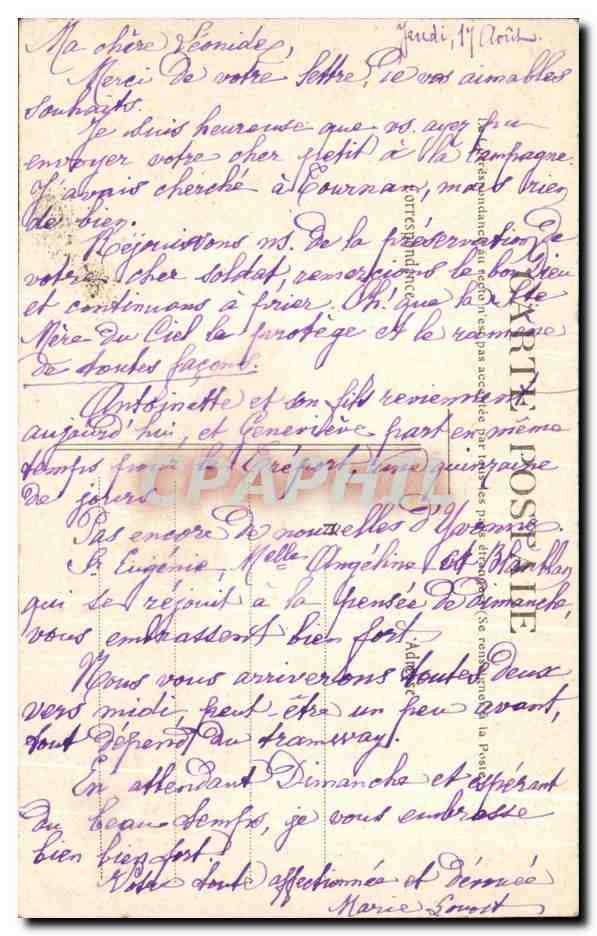 Jeudi, 17 Août.
Ma chère Léonide,
Merci de votre lettre, de vos aimables
souhaits.
Je suis heureuse que vs. ayez pu
envoyer votre cher petit à la campagne.
J'avais cherché à Tournan, mais rien
de bien.
Réjouissons ns. de la préservation de
votre cher soldat, remercions le bon Dieu
et continuons à prier. Oh! que la
Mère du Ciel le protège et le ramène
de toutes façons.
Antoinette et son fils reviennent
aujourd'hui, et Geneviève part en même
temps pour le Tréport, une quinzaine
de jours.
Pas encore de nouvelles d'Yvonne.
Sr Eugénie, Melle Angéline et
qui se réjouit à la pensée de Dimanche,
vous embrassent bien fort.
Nous vous arriverons toutes deux
vers midi, peut-être un peu avant,
tout dépend du tramway.
En attendant Dimanche et espérant
du beau temps, je vous embrasse
bien bien fort!
Votre toute affectionnée et dévouée
Marie
CARTE POSTALE
La correspondance au recto n'est pas acceptée par tous les pays étrangers (Se renseigner à la Poste)
Correspondance
Adresse
CPAPHIL